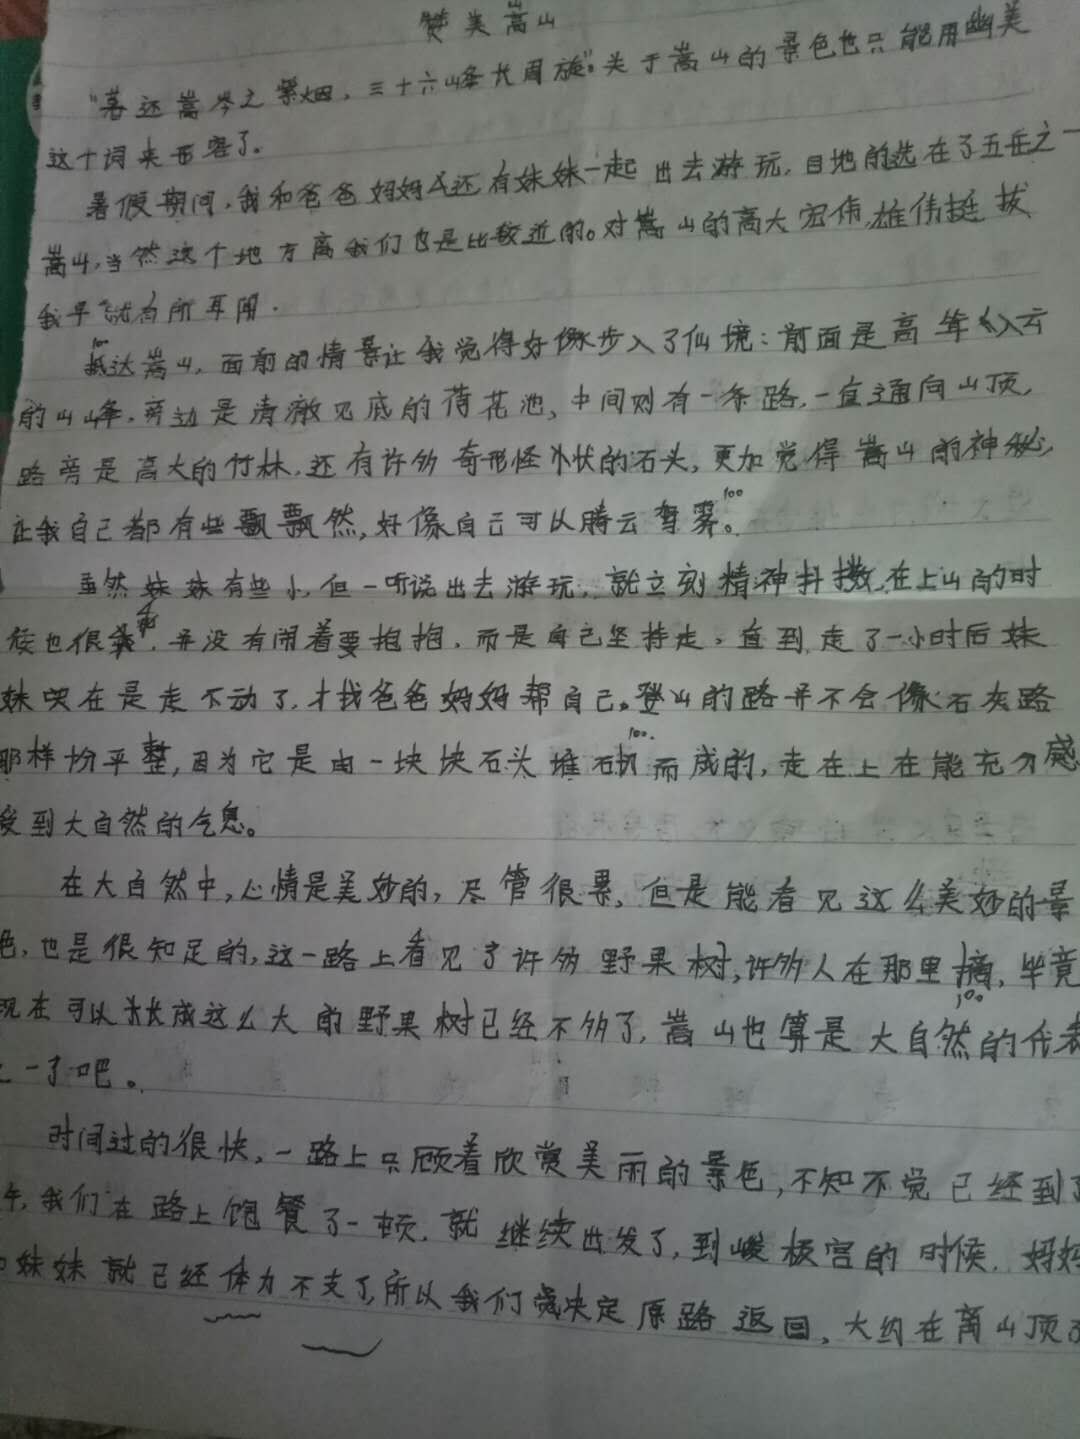 赞美嵩山
"若还嵩岑之紫烟，三十六峰长周旋"。关于嵩山的景色也只能用幽美
这个词来形容了。
暑假期间，我和爸爸妈妈还有妹妹一起出去游玩，目地的选在了五岳之一
嵩山，当然这个地方离我们也是比较近的。对嵩山的高大宏伟，雄伟挺拔
我早就有所耳闻。
抵达嵩山，面前的情景让我觉得好像步入了仙境：前面是高耸入云
的山峰，旁边是清澈见底的荷花池，中间则有一条路，一直通向山顶，
路旁是高大的竹林，还有许多奇形怪状的石头，更加觉得嵩山的神秘，
让我自己都有些飘飘然，好像自己可以腾云驾雾。
虽然妹妹有些小，但一听说出去游玩，就立刻精神抖擞，在上山的时
候也很乖，并没有闹着要抱抱，而是自己坚持走，直到走了一小时后妹
妹实在是走不动了，才找爸爸妈妈帮自己。登山的路并不会像石灰路
那样均平整，因为它是由一块块石头堆砌而成的，走在上在能充分感
受到大自然的气息。
在大自然中，心情是美妙的，尽管很累，但是能看见这么美妙的景
色，也是很知足的，这一路上看见了许多野果树，许多人在那里摘，毕竟
现在可以长成这么大的野果树已经不多了，嵩山也算是大自然的代表
之一了吧。
时间过的很快，一路上只顾着欣赏美丽的景色，不知不觉已经到了
午，我们在路上饱餐了一顿，就继续出发了，到峻极宫的时候，妈妈
妹妹就已经体力不支了，所以我们决定原路返回，大约在离山顶